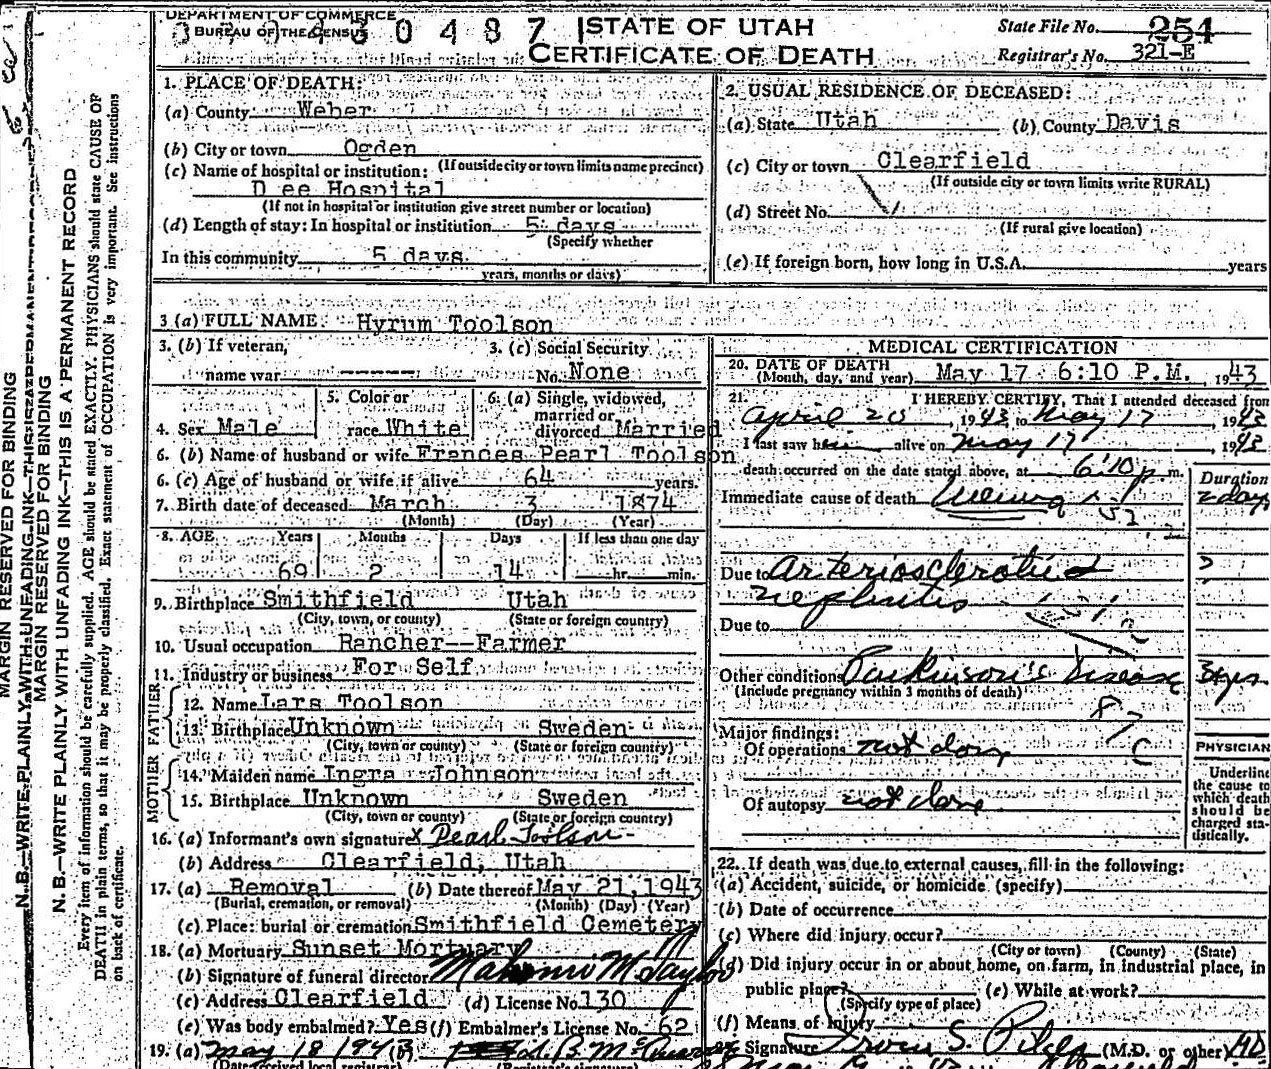 DEPARTMENT OF COMMERCE
BUREAU OF THE CENSUS
0 4 8 7
STATE OF UTAH
CERTIFICATE OF DEATH
State File No. 254
Registrar's No. 321-E
1. PLACE OF DEATH:
(a) County Weber
(b) City or town Ogden
(If outside city or town limits name precinct)
(c) Name of hospital or institution:
Dee Hospital
(If not in hospital or institution give street number or location)
(d) Length of stay: In hospital or institution 5 days
(Specify whether
In this community 5 days
years, months or days)
2. USUAL RESIDENCE OF DECEASED:
(a) State Utah (b) County Davis
(c) City or town Clearfield
(If outside city or town limits write RURAL)
(d) Street No.
(If rural give location)
(e) If foreign born, how long in U.S.A. years
3 (a) FULL NAME Hyrum Toolson
3. (b) If veteran, name war -----
3. (c) Social Security No. None
4. Sex Male
5. Color or race White
6. (a) Single, widowed, married or divorced Married
6. (b) Name of husband or wife Frances Pearl Toolson
6. (c) Age of husband or wife if alive 64 years.
7. Birth date of deceased March 3 1874
(Month) (Day) (Year)
8. AGE Years Months Days If less than one day
69 2 14 hr. min.
9. Birthplace Smithfield Utah
(City, town, or county) (State or foreign country)
10. Usual occupation Rancher--Farmer
11. Industry or business For Self
FATHER
12. Name Lars Toolson
13. Birthplace Unknown Sweden
(City, town or county) (State or foreign country)
MOTHER
14. Maiden name Ingra Johnson
15. Birthplace Unknown Sweden
(City, town or county) (State or foreign country)
16. (a) Informant's own signature x Pearl Toolson
(b) Address Clearfield, Utah
17. (a) Removal (b) Date thereof May 21, 1943
(Burial, cremation, or removal) (Month) (Day) (Year)
(c) Place: burial or cremation Smithfield Cemetery
18. (a) Mortuary Sunset Mortuary
(b) Signature of funeral director M Taylor
(c) Address Clearfield (d) License No. 130
(e) Was body embalmed? Yes (f) Embalmer's License No. 62
19. (a) May 18 1943 (b)
(Date received local registrar) (Registrar's signature)
MEDICAL CERTIFICATION
20. DATE OF DEATH
(Month, day, and year) May 17 6:10 P.M. 1943
21. I HEREBY CERTIFY, That I attended deceased from
April 20, 1943 to May 17, 1943
I last saw him alive on May 17, 1943
death occurred on the date stated above, at 6:10 p m.
Duration
Immediate cause of death Uremia 2 days
Due to Arteriosclerotic
nephritis ?
Due to
Other conditions Parkinson's Disease 3 yrs.
(Include pregnancy within 3 months of death)
87
C
Major findings:
Of operations not done
Of autopsy not done
PHYSICIAN
Underline the cause to which death should be charged statistically.
22. If death was due to external causes, fill in the following:
(a) Accident, suicide, or homicide (specify)
(b) Date of occurrence
(c) Where did injury occur?
(City or town) (County) (State)
(d) Did injury occur in or about home, on farm, in industrial place, in
public place? (e) While at work?
(Specify type of place)
(f) Means of Injury
Signature S. (M.D. or other) MD
MARGIN RESERVED FOR BINDING
MARGIN RESERVED FOR BINDING
N. B.—WRITE PLAINLY WITH UNFADING INK—THIS IS A PERMANENT RECORD
Every item of information should be carefully supplied. AGE should be stated EXACTLY. PHYSICIANS should state CAUSE OF
DEATH in plain terms, so that it may be properly classified. Exact statement of OCCUPATION is very important. See instructions
on back of certificate.